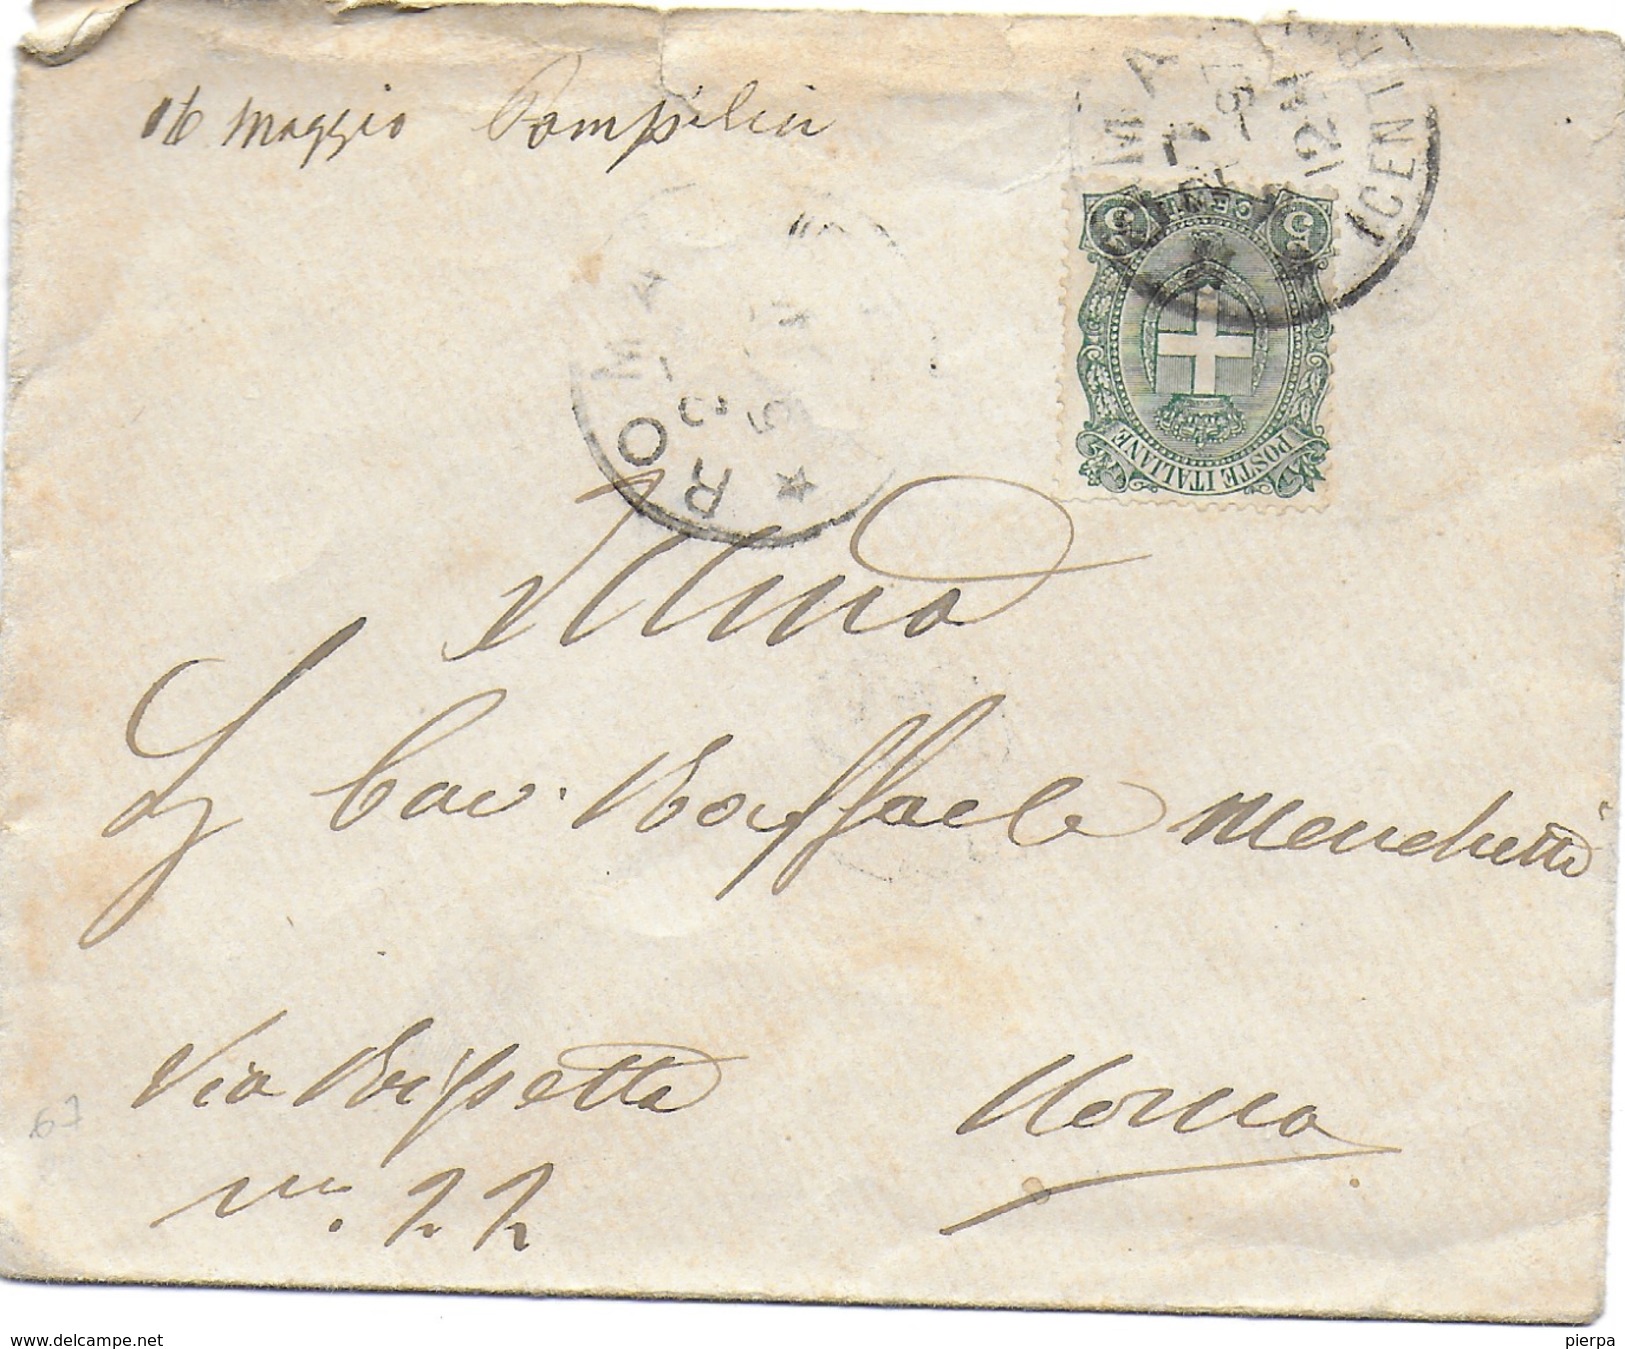 16 Maggio Pompilii
ROMA
ROMA
(CENTRO)
12 M
5 CENT. 5
POSTE ITALIANE
Illmo
Sig Cav. Raffaele Menchetti
Via Ripetta
Roma
No. 22
67
www.delcampe.net
pierpa